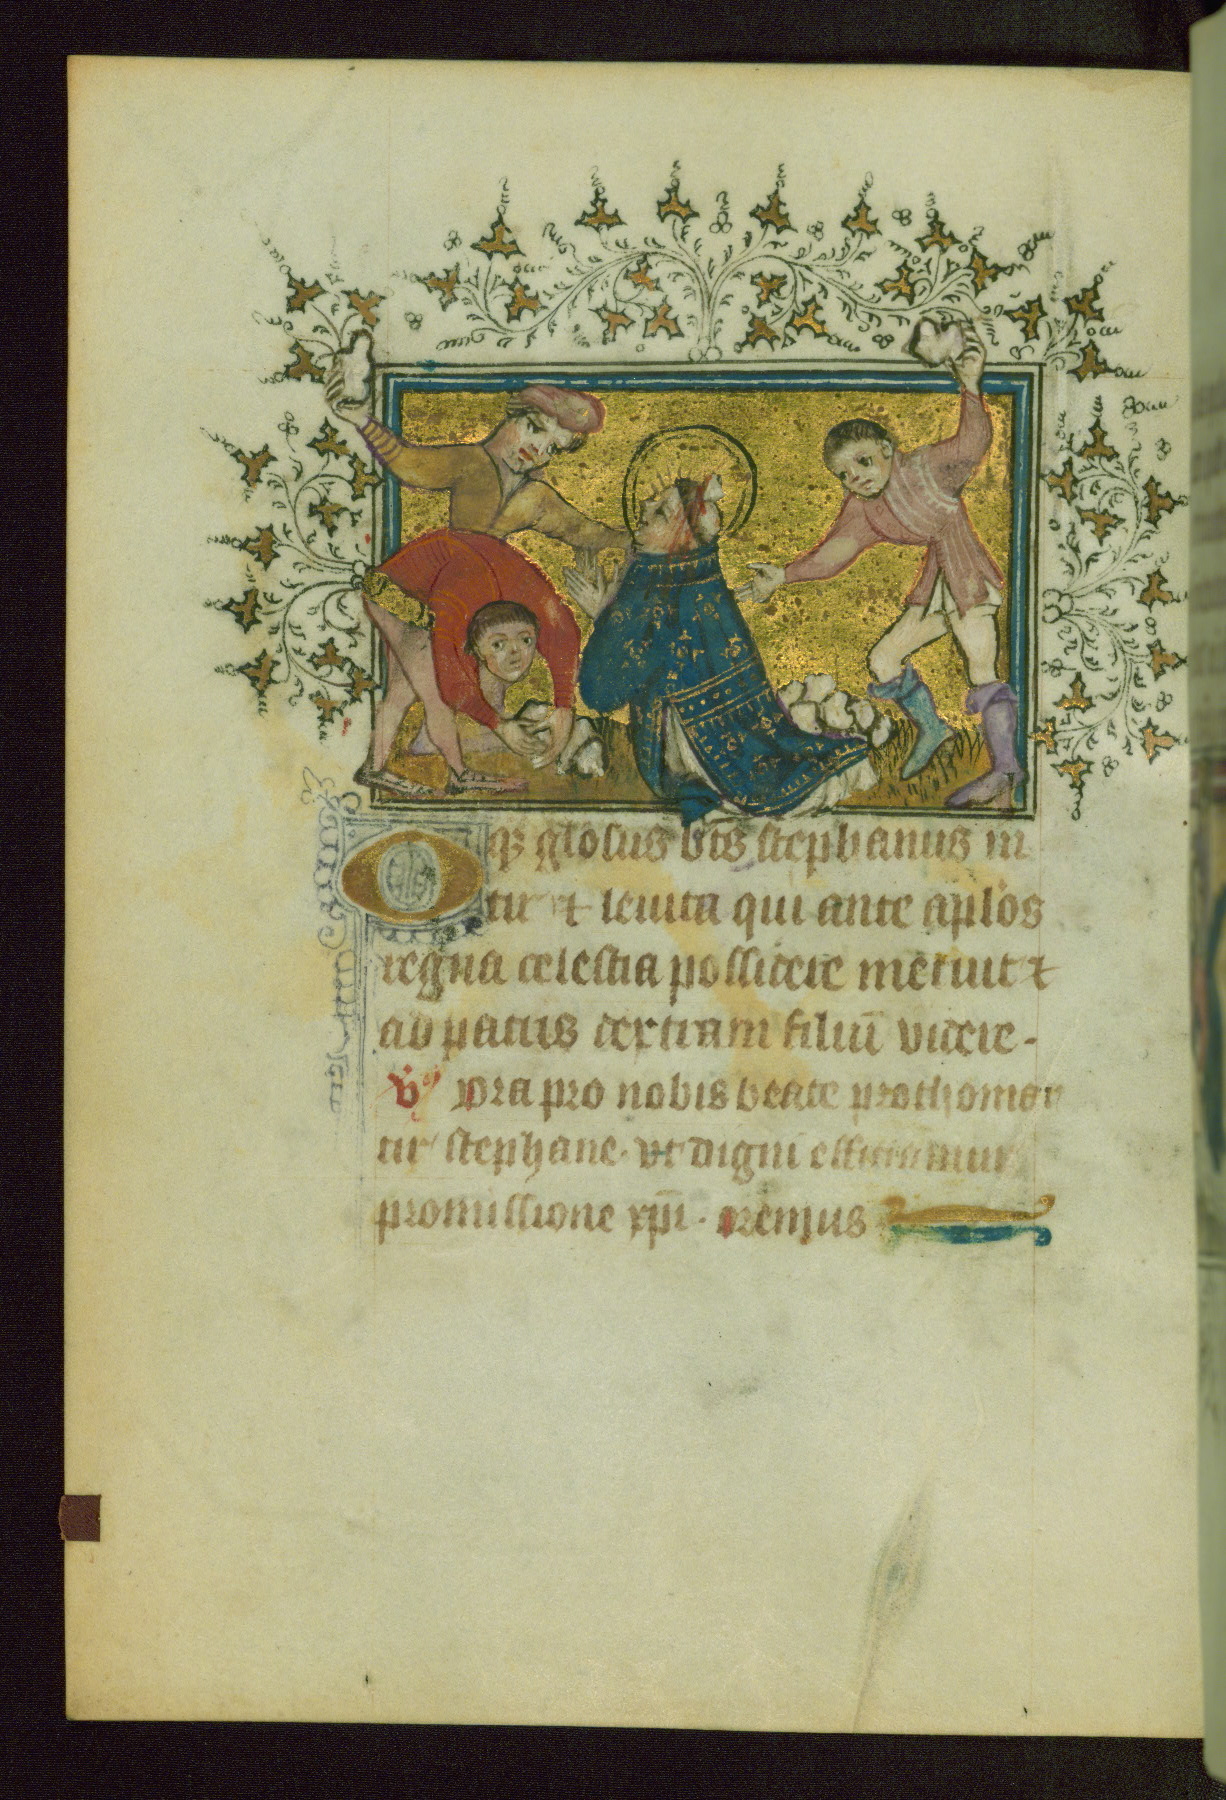 O q̄ glōsus bt̄s stephanus m
tir et leuita qui ante apl̄os
regna celestia pollicere meruit et
ad patris dextram filiū videre.
V̄ Ora pro nobis beate prothomar
tir stephane. vt digni efficiamur
promissione xp̄i. oremus